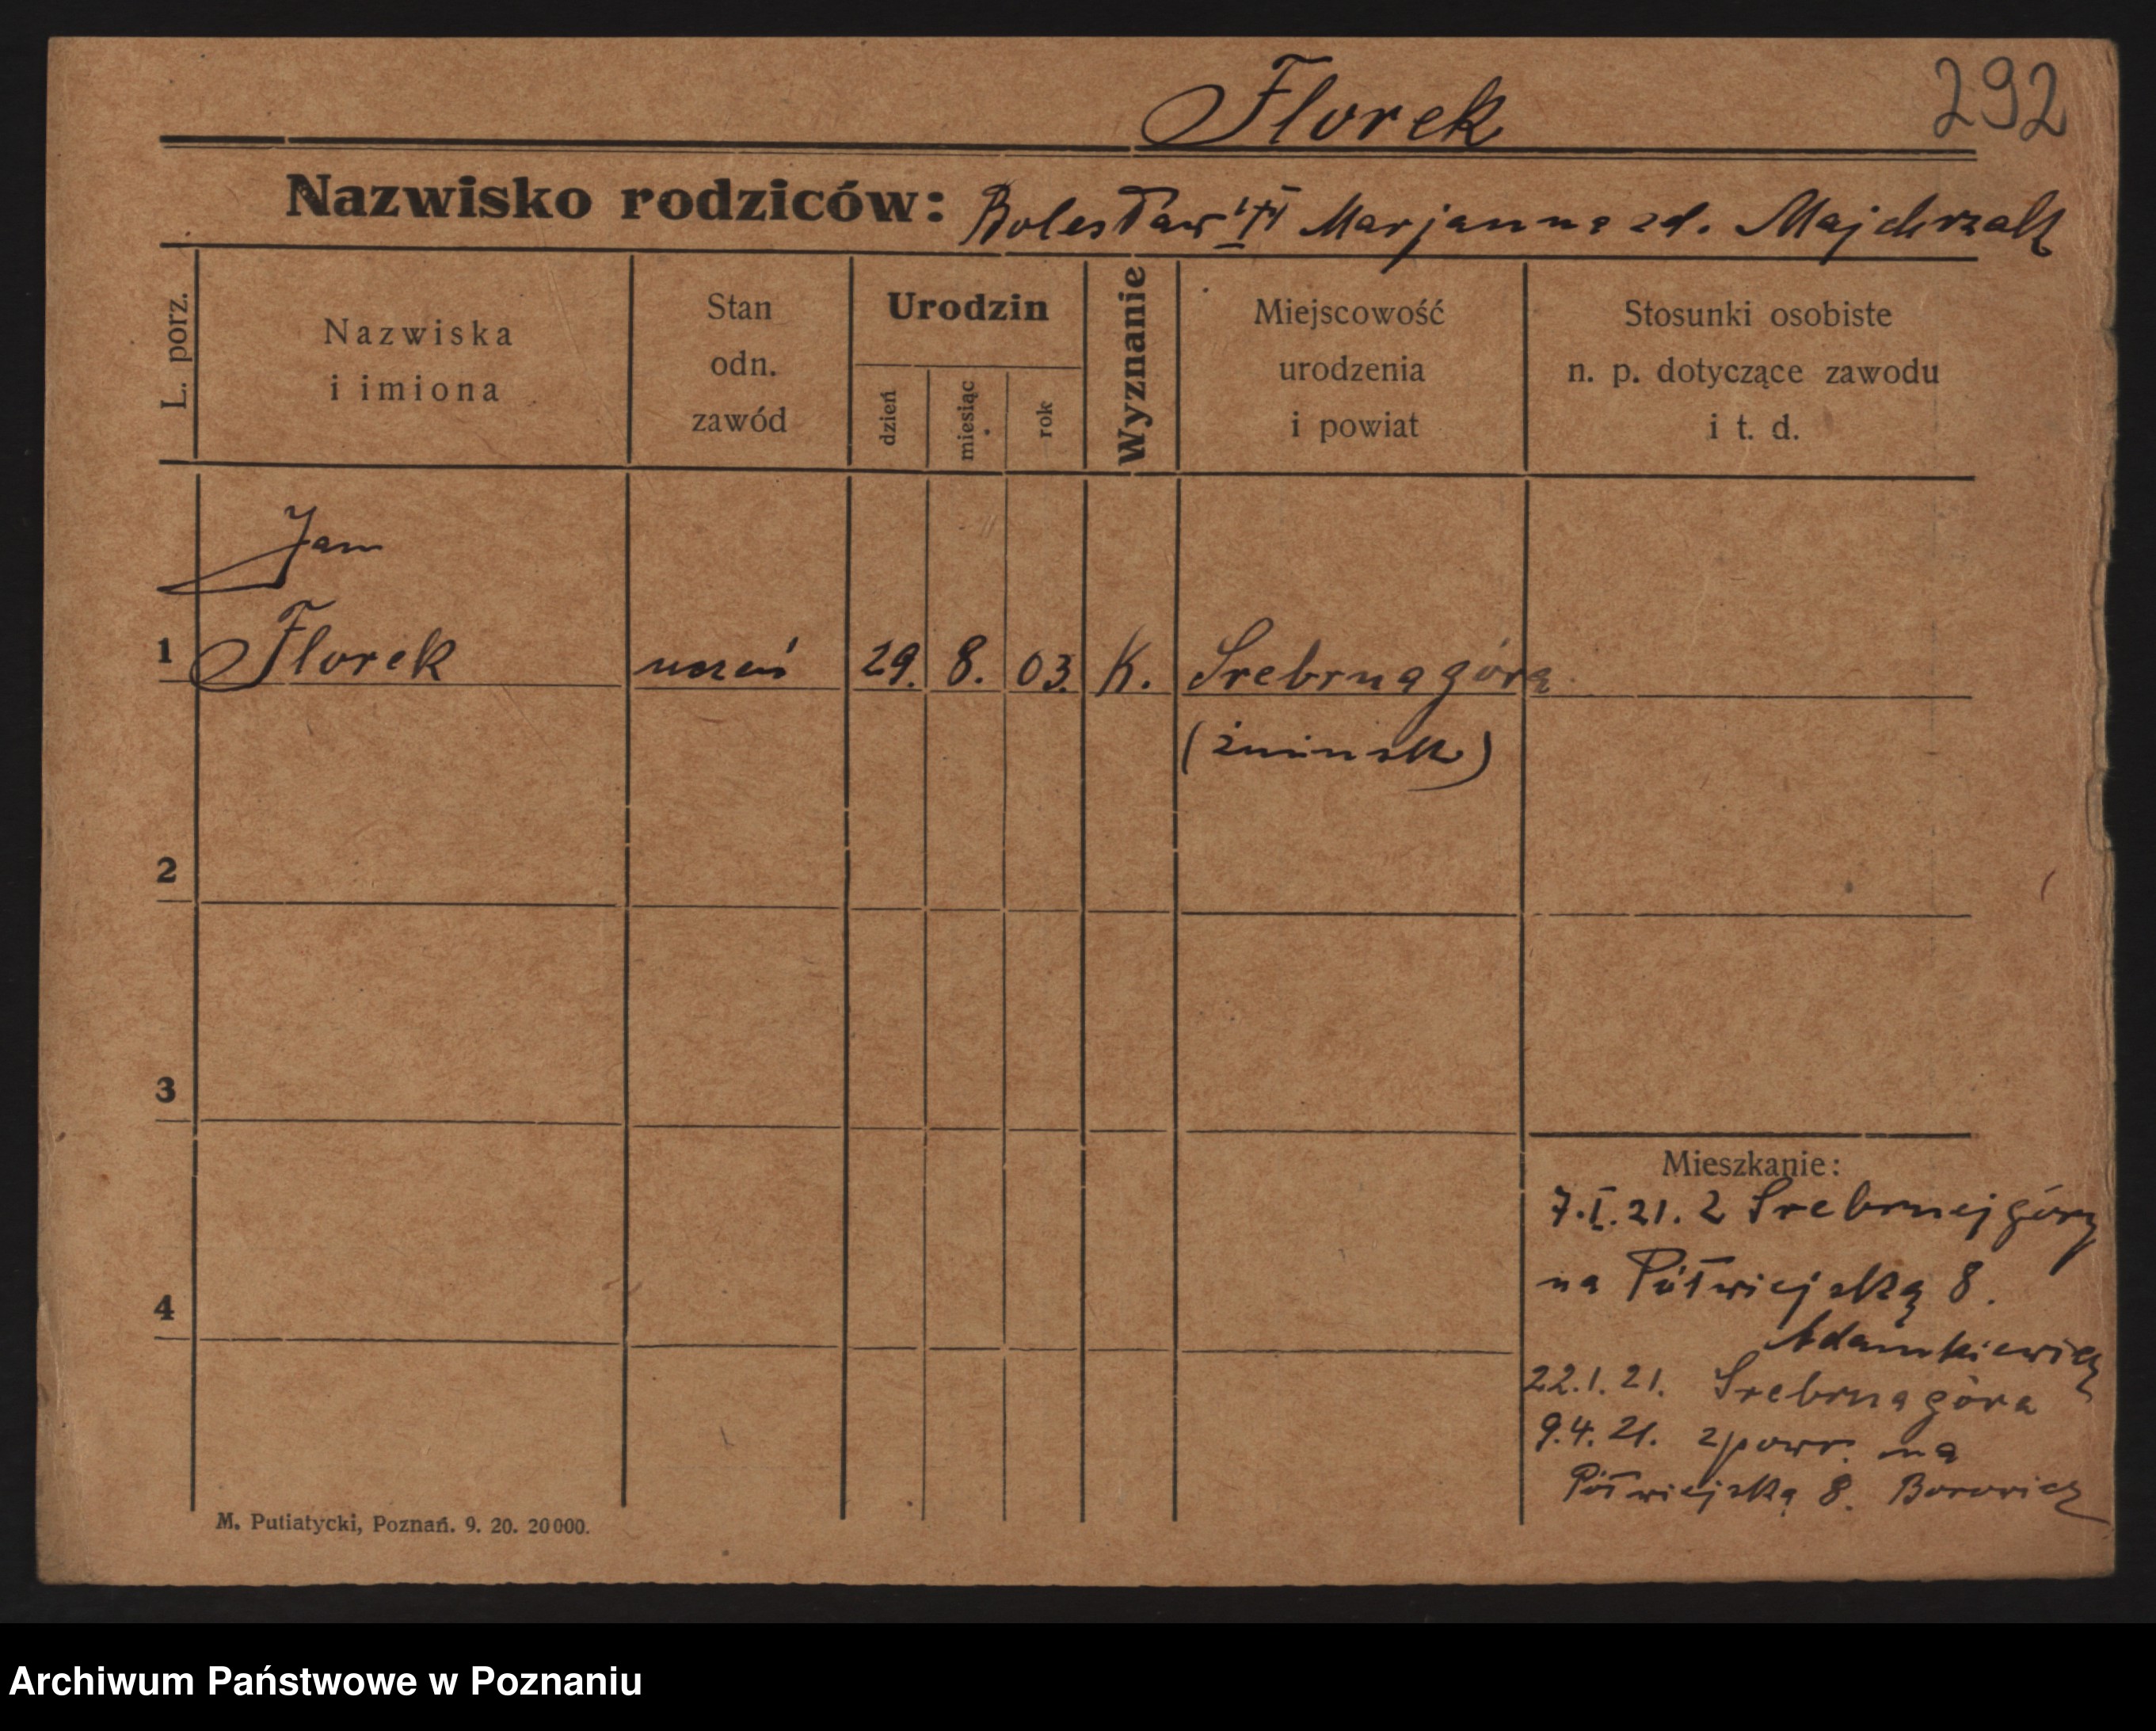 Florek 292
Nazwisko rodziców: Bolesław i Marjanna zd. Majchrzak
L. porz.
Nazwiska
i imiona
Stan
odn.
zawód
Urodzin
dzień
miesiąc
rok
Wyznanie
Miejscowość
urodzenia
i powiat
Stosunki osobiste
n. p. dotyczące zawodu
i t. d.
Jan
1 Florek uczeń 29. 8. 03. K. Srebrnagóra
(żninsk)
2
3
4
Mieszkanie:
7.I.21. z Srebrnejgóry
na Półwiejską 8.
Adamkiewicz
22.1.21. Srebrnagóra
9.4.21. zpowr. na
Półwiejską 8. Borowicz
M. Putiatycki, Poznań. 9. 20. 20000.
Archiwum Państwowe w Poznaniu